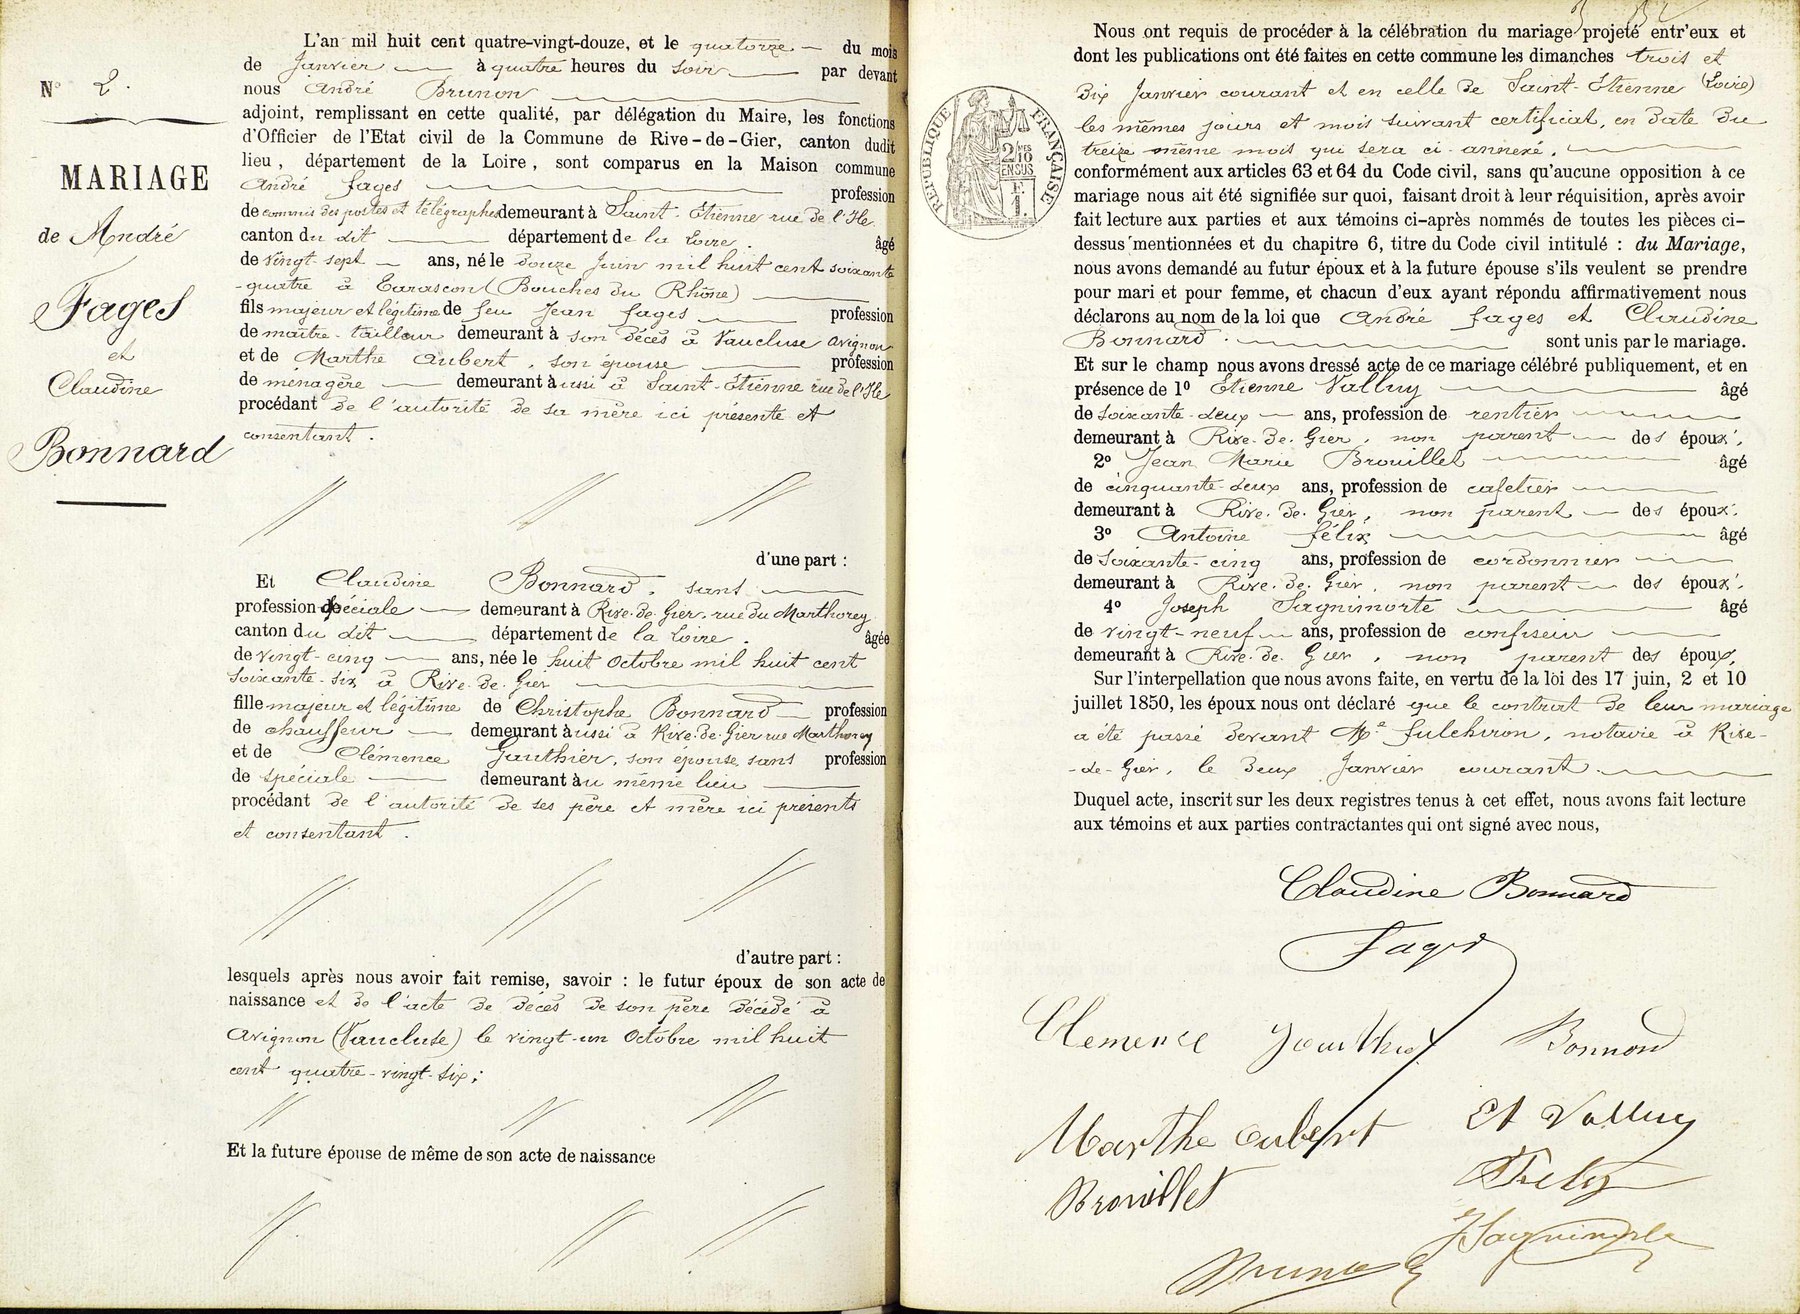 N° 2.
MARIAGE
de André
Fages
et
Claudine
Bonnard
L'an mil huit cent quatre-vingt-douze, et le quatorze du mois
de Janvier à quatre heures du soir par devant
nous André Brunon
adjoint, remplissant en cette qualité, par délégation du Maire, les fonctions
d'Officier de l'Etat civil de la Commune de Rive-de-Gier, canton dudit
lieu, département de la Loire, sont comparus en la Maison commune
André fages profession
de commis des postes et télégraphes demeurant à Saint-Etienne rue de l'Ile
canton du dit département de la Loire. âgé
de vingt-sept ans, né le douze Juin mil huit cent soixante
-quatre à Tarascon (Bouches du Rhône)
fils majeur et légitime de feu Jean fages profession
de maître-tailleur demeurant à son décès à Vaucluse Avignon
et de Marthe Aubert, son épouse profession
de ménagère demeurant aussi à Saint-Etienne rue de l'Ile
procédant de l'autorité de sa mère ici présente et
consentant.
d'une part :
Et Claudine Bonnard, sans
profession spéciale demeurant à Rive-de-Gier, rue du Marthorey
canton du dit département de la Loire. âgée
de vingt-cinq ans, née le huit octobre mil huit cent
soixante-six à Rive-de-Gier
fille majeur et légitime de Christophe Bonnard profession
de chauffeur demeurant aussi à Rive-de-Gier rue Marthorey
et de Clémence Gauthier, son épouse sans profession
de spéciale demeurant au même lieu
procédant de l'autorité de ses père et mère ici présents
et consentant.
d'autre part :
lesquels après nous avoir fait remise, savoir : le futur époux de son acte de
naissance et de l'acte de décès de son père décédé à
Avignon (Vaucluse) le vingt-un Octobre mil huit
cent quatre-vingt-six;
Et la future épouse de même de son acte de naissance
Nous ont requis de procéder à la célébration du mariage projeté entr'eux et
dont les publications ont été faites en cette commune les dimanches trois et
dix Janvier courant et en celle de Saint-Etienne (Loire)
les mêmes jours et mois suivant certificat, en date du
treize même mois qui sera ci-annexé.
RÉPUBLIQUE FRANÇAISE
2/10 EN SUS
conformément aux articles 63 et 64 du Code civil, sans qu'aucune opposition à ce
mariage nous ait été signifiée sur quoi, faisant droit à leur réquisition, après avoir
fait lecture aux parties et aux témoins ci-après nommés de toutes les pièces ci-
dessus mentionnées et du chapitre 6, titre du Code civil intitulé : du Mariage,
nous avons demandé au futur époux et à la future épouse s'ils veulent se prendre
pour mari et pour femme, et chacun d'eux ayant répondu affirmativement nous
déclarons au nom de la loi que André fages et Claudine
Bonnard. sont unis par le mariage.
Et sur le champ nous avons dressé acte de ce mariage célébré publiquement, et en
présence de 1° Etienne Valluy âgé
de soixante-deux ans, profession de rentier
demeurant à Rive-de-Gier, non parent des époux.
2° Jean Marie Brouillet âgé
de cinquante-deux ans, profession de cafetier
demeurant à Rive-de-Gier, non parent des époux.
3° Antoine félix âgé
de soixante-cinq ans, profession de cordonnier
demeurant à Rive-de-Gier, non parent des époux.
4° Joseph Sagnimorte âgé
de vingt-neuf ans, profession de confiseur
demeurant à Rive-de-Gier, non parent des époux,
Sur l'interpellation que nous avons faite, en vertu de la loi des 17 juin, 2 et 10
juillet 1850, les époux nous ont déclaré que le contrat de leur mariage
a été passé devant Me fulchiron, notaire à Rive-
-de-Gier, le deux Janvier courant.
Duquel acte, inscrit sur les deux registres tenus à cet effet, nous avons fait lecture
aux témoins et aux parties contractantes qui ont signé avec nous,
Claudine Bonnard
Fages
Clemence Bonnard
Marthe Aubert Et Valluy
Brouillet